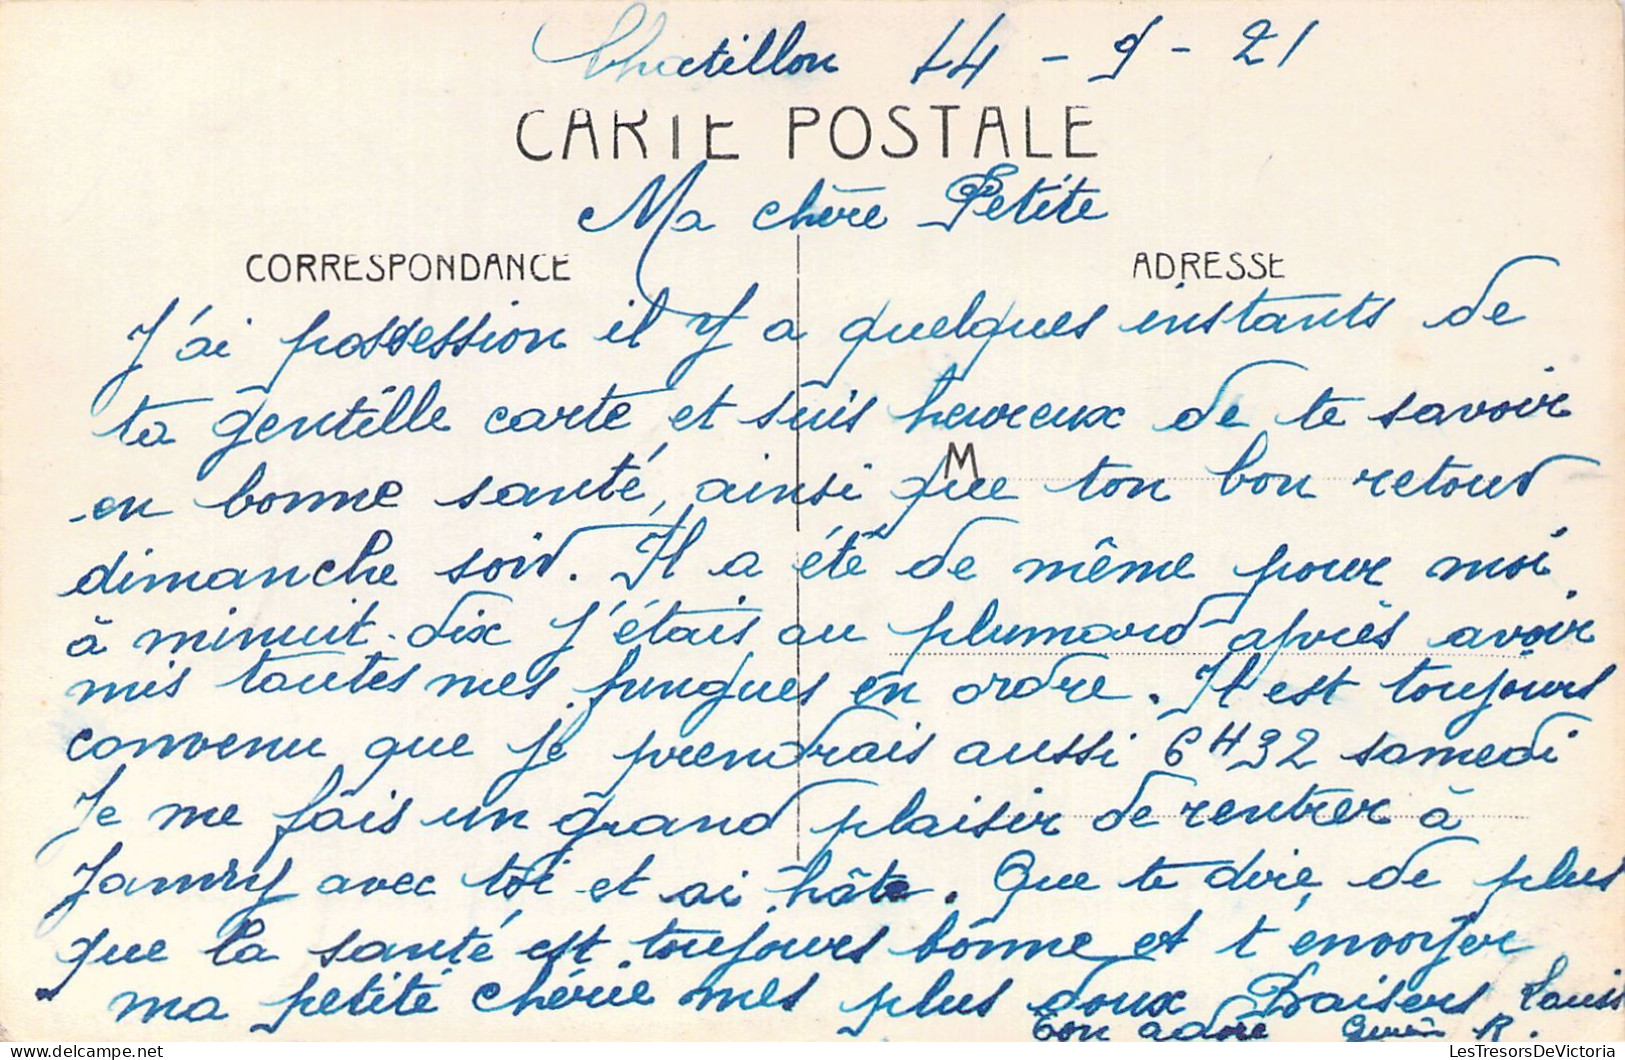 Chatillon 14 - 9 - 21
CARTE POSTALE
Ma chère Petite
CORRESPONDANCE
ADRESSE
J'ai possession il y a quelques instants de
ta gentille carte et suis heureux de te savoir
en bonne santé, ainsi que ton bon retour
M
dimanche soir. Il a été de même pour moi
à minuit dix j'étais au plumard après avoir
mis toutes mes fringues en ordre. Il est toujours
convenu que je prendrais aussi 6H32 samedi
Je me fais un grand plaisir de rentrer à
avec toi et ai hâte. Que te dire de plus
que la santé est toujours bonne et t'envoyer
ma petite chérie mes plus doux Baisers Louis
Ton adoré R.
LesTresorsDeVictoria